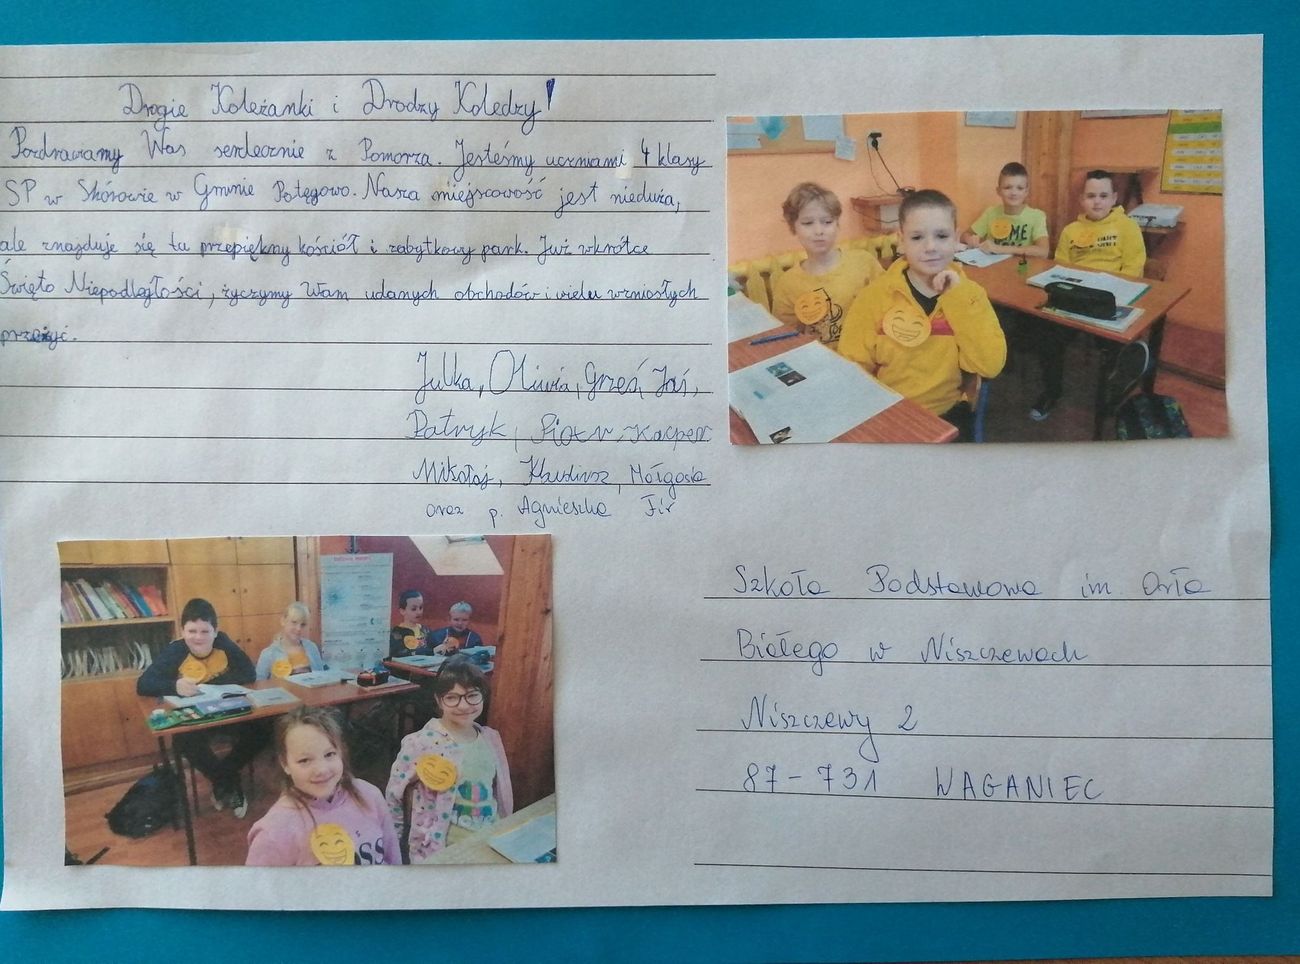 Drogie Koleżanki i Drodzy Koledzy!
Pozdrawiamy Was serdecznie z Pomorza. Jesteśmy uczniami 4 klasy
SP w Skórowie w Gminie Potęgowo. Nasza miejscowość jest nieduża,
ale znajduje się tu przepiękny kościół i zabytkowy park. Już wkrótce
Święto Niepodległości, życzymy Wam udanych obchodów i wielu wzniosłych
przeżyć.
Julka, Oliwia, Grześ, Jaś,
Patryk, Piotr, Kacper
Mikołaj, Klaudiusz, Małgosia
oraz p. Agnieszka Fir
Szkoła Podstawowa im. Orła
Białego w Niszczewach
Niszczewy 2
87-731 WAGANIEC